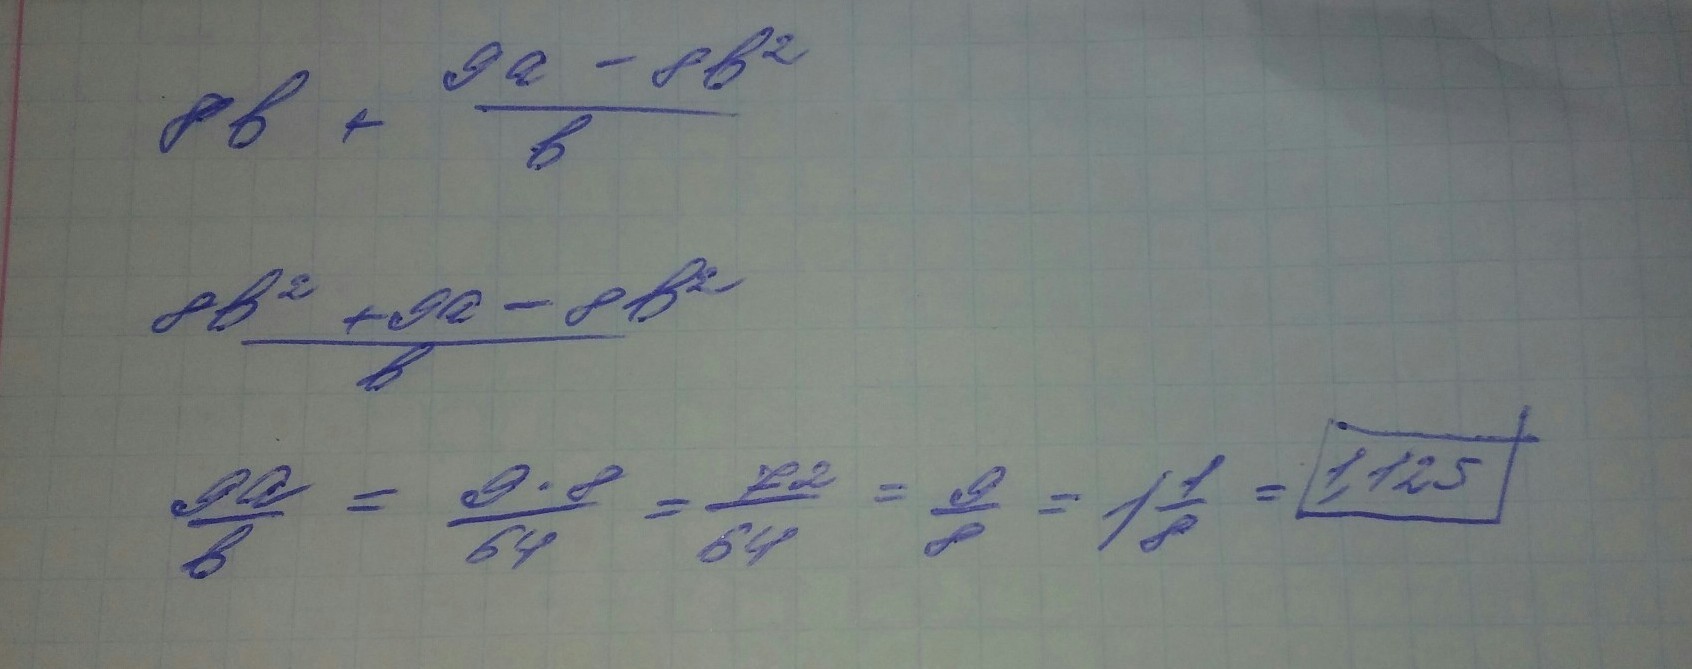 8b + (9a - 8b²)/b
(8b² + 9a - 8b²)/b
9a/b = (9·8)/64 = 72/64 = 9/8 = 1 1/8 = 1,125